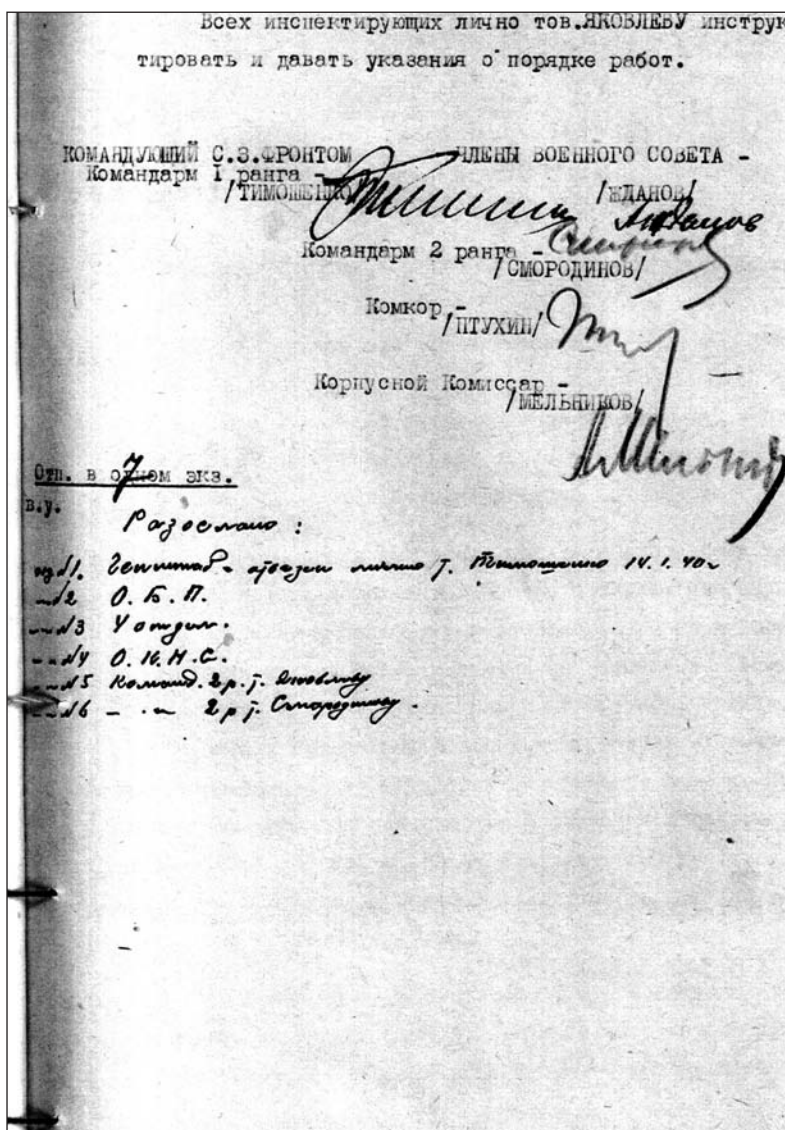 Всех инспектирующих лично тов.ЯКОВЛЕВУ инструк
тировать и давать указания о порядке работ.
КОМАНДУЮЩИЙ С.З.ФРОНТОМ ЧЛЕНЫ ВОЕННОГО СОВЕТА -
Командарм I ранга -
/ТИМОШЕНКО/ /ЖДАНОВ/
АЖданов
Командарм 2 ранга -
/СМОРОДИНОВ/
Комкор -
/ПТУХИН/
Корпусной Комиссар -
/МЕЛЬНИКОВ/
Отп. в одном экз.
7
в.у.
Разослано :
№1. Генштаб - лично т. Тимошенко 14.1.40г
-"-№2 О. Б. П.
-"-№3 У отдел.
-"-№4 О. К. Н. С.
-"-№5 Команд. 2 р. т. Яковлеву
-"-№6 - " - 2 р т. Смородинову.